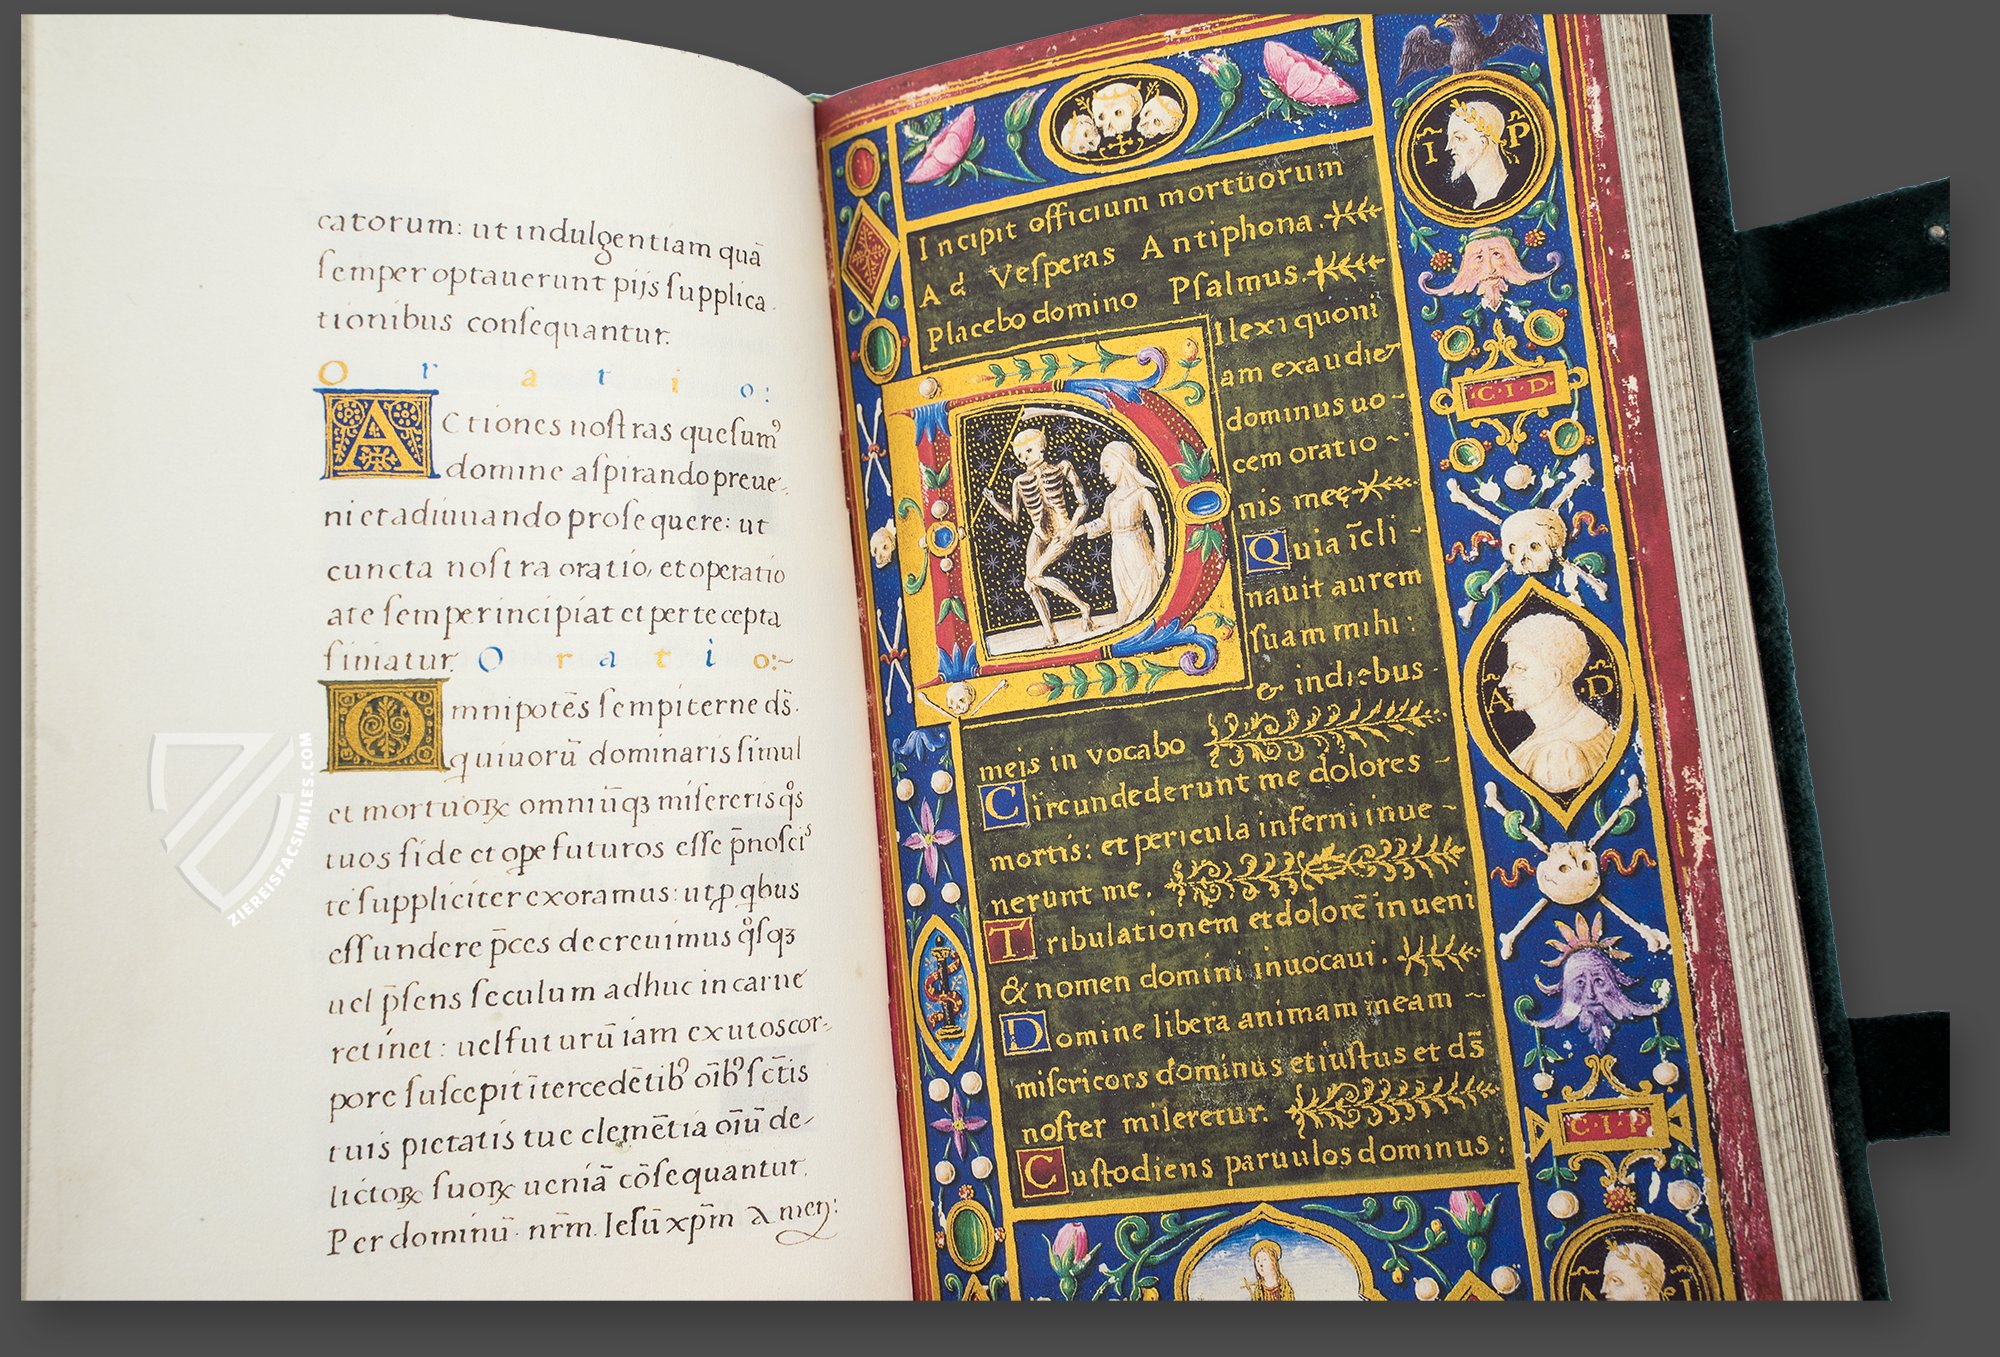 catorum: ut indulgentiam quā
ſemper optauerunt pijs ſupplica-
tionibus conſequantur.
O r a t i o:
ACtiones noſtras queſumꝰ
domine aſpirando preue-
ni et adiuuando proſequere: ut
cuncta noſtra oratio, et operatio
a te ſemper incipiat et per te cepta
finiatur. O r a t i o:~
Omnipotēs ſempiterne ds̄.
qui uiuorū dominaris ſimul
et mortuoꝝ omniūqꝫ miſereris qͦs
tuos fide et ope futuros eſſe p̄noſciˢ
te ſuppliciter exoramus: ut ꝓ qͥbus
effundere p̄ces decreuimus qͦſqꝫ
uel p̄ſens ſeculum adhuc in carne
retinet: uel futurū iam exutos cor-
pore ſuſcepit ītercedētibꝰ oībꝰ ſctīs
tuis pietatis tue clemētia oīū de-
lictoꝝ ſuoꝝ ueniā cōſequantur.
Per dominū nr̄m Ieſū xp̄m Amen:
Incipit officium mortuorum
Ad Veſperas Antiphona.
Placebo domino Pſalmus.
DIlexi quoni
am exaudiet
dominus uo-
cem oratio~
nis meę
Quia īcli-
nauit aurem
ſuam mihi:
& in diebus
meis in vocabo
Circundederunt me dolores ~
mortis: et pericula inferni inue ~
nerunt me.
Tribulationem et dolorē inueni
& nomen domini inuocaui.
Domine libera animam meam ~
miſericors dominus et iuſtus et ds̄
noſter miſeretur.
Cuſtodiens paruulos dominus:
I P
C·I·D·
A ·D
C·I·P
A I
ZIEREISFACSIMILES.COM